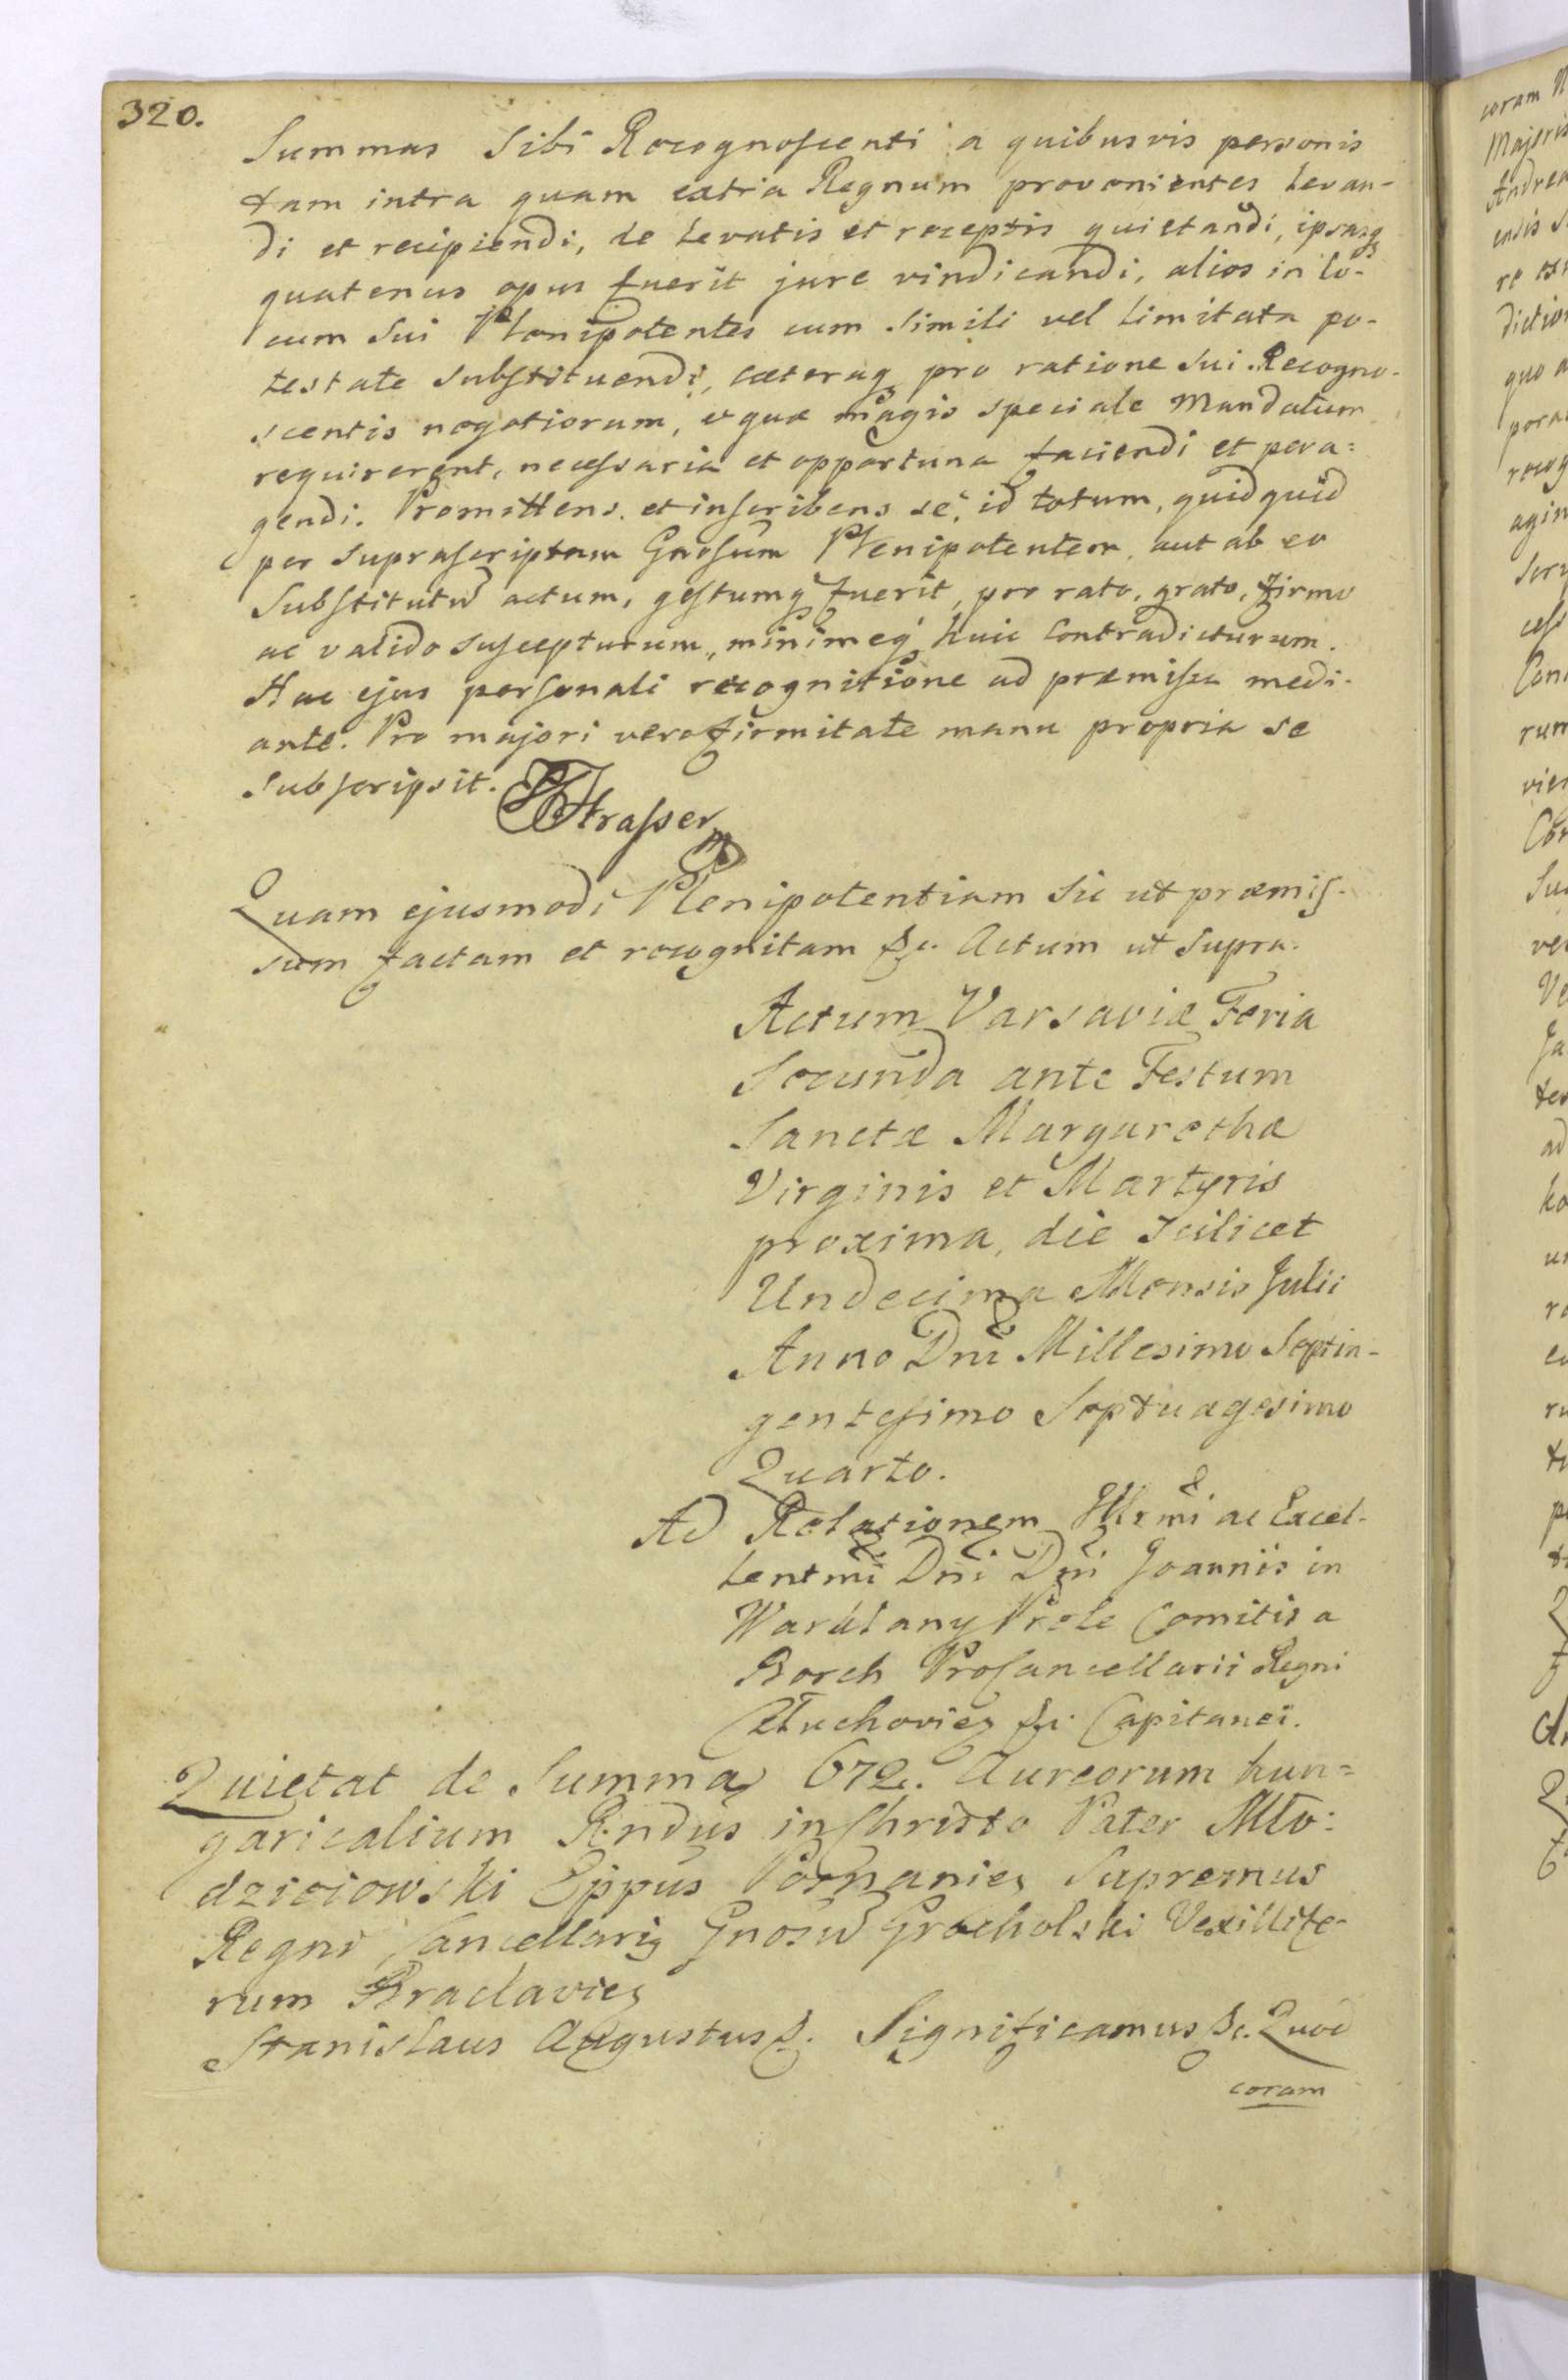 320.
Summas Sibi Recognoscenti a quibusvis personis
tam intra quam extra Regnum provenientes levan-
di et recipiendi, de levatis et receptis quietandi, ipsasq
quatenus opus fuerit jure vindicandi, alios in lo-
cum sui Plenipotentes cum simili vel limitata po-
testate substituendi, caeteraq pro ratione sui Recogno-
scentis negotiorum, et quae magis speciale Mandatum
requirerent, necessaria et opportuna faciendi et pera=
gendi. Promittens et inscribens se, id totum, quidquid
per suprascriptum Gnosum Plenipotentem, aut ab eo
Substitutum actum, gestumq fuerit, pro rato, grato, firmo
ac valido suscepturum, minimeq huic Contradicturum.
Hac ejus personali recognitione ad praemissa medi-
ante. Pro majori vero firmitate manu propria se
subscripsit.
Strasser
Quam ejusmodi Plenipotentiam sic ut praemis-
sum factam et recognitam &c. Actum ut supra.
Actum Varsaviae Feria
Secunda ante Festum
Sanctae Margarethae
Virginis et Martyris
proxima, die scilicet
Undecima Mensis Julii
Anno Dni Millesimo Septin-
gentesimo Septuagesimo
Quarto.
Ad Relationem Illrmi ac Excel-
lentmi Dni Dni Joannis in
Warklany Prele Comitis a
Borch ProCancellarii Regni
Luchovien &c. Capitanei.
Quietat de Summa 672. Aureorum hun=
garicalium Rndus in Christo Pater Mło:
dzieiowski Eppus Posnanien Supremus
Regni Cancellarig Gnosum Grocholski Vexillife-
rum Braclavien
Stanislaus Augustus &. Significamus &c. Quod
coram